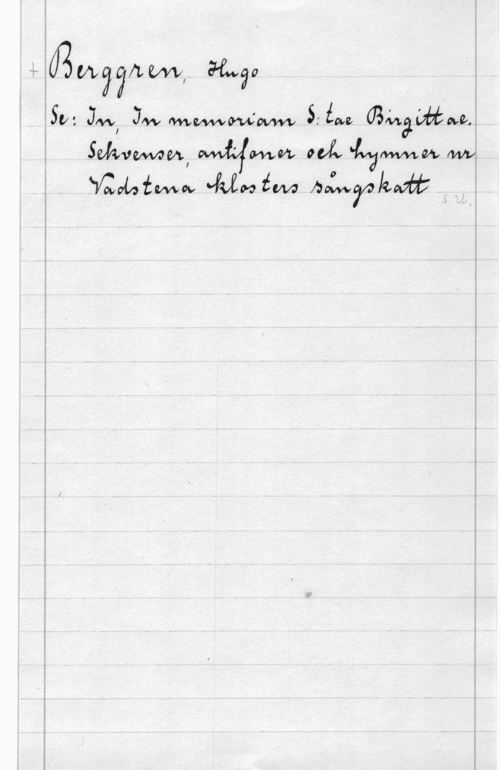 + Berggren, Hugo
Se: In, In memoriam S:tae Birgittae.
Sekvenser, antifoner och hymner ur
Vadstena klosters sångskatt
s. u.